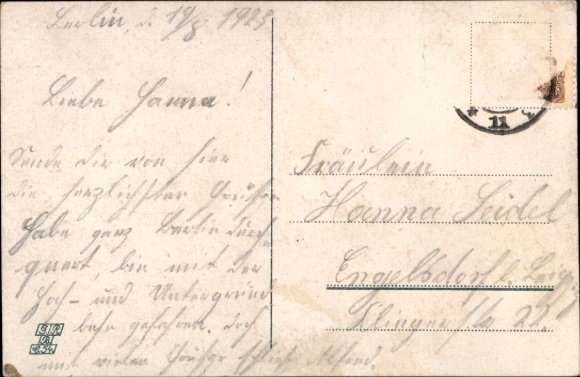 Berlin, d. 19/8 1925
Liebe Hanna!
Sende Dir von hier
die herzlichsten Grüße
Habe ganz Berlin durch-
quert, bin mit der
Hoch- und Untergrund
bahn gefahren. Doch
mit vielen Grüßen
Fräulein
Hanna Seidel
Engelsdorf b. Leipz.
22.
11